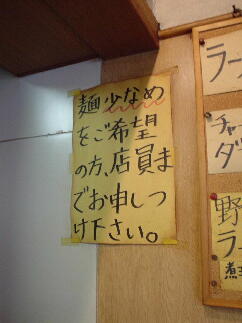 麺少なめ
をご希望
の方、店員ま
でお申しつ
け下さい。
ラー
チャー
ダ
野
ラ
煮